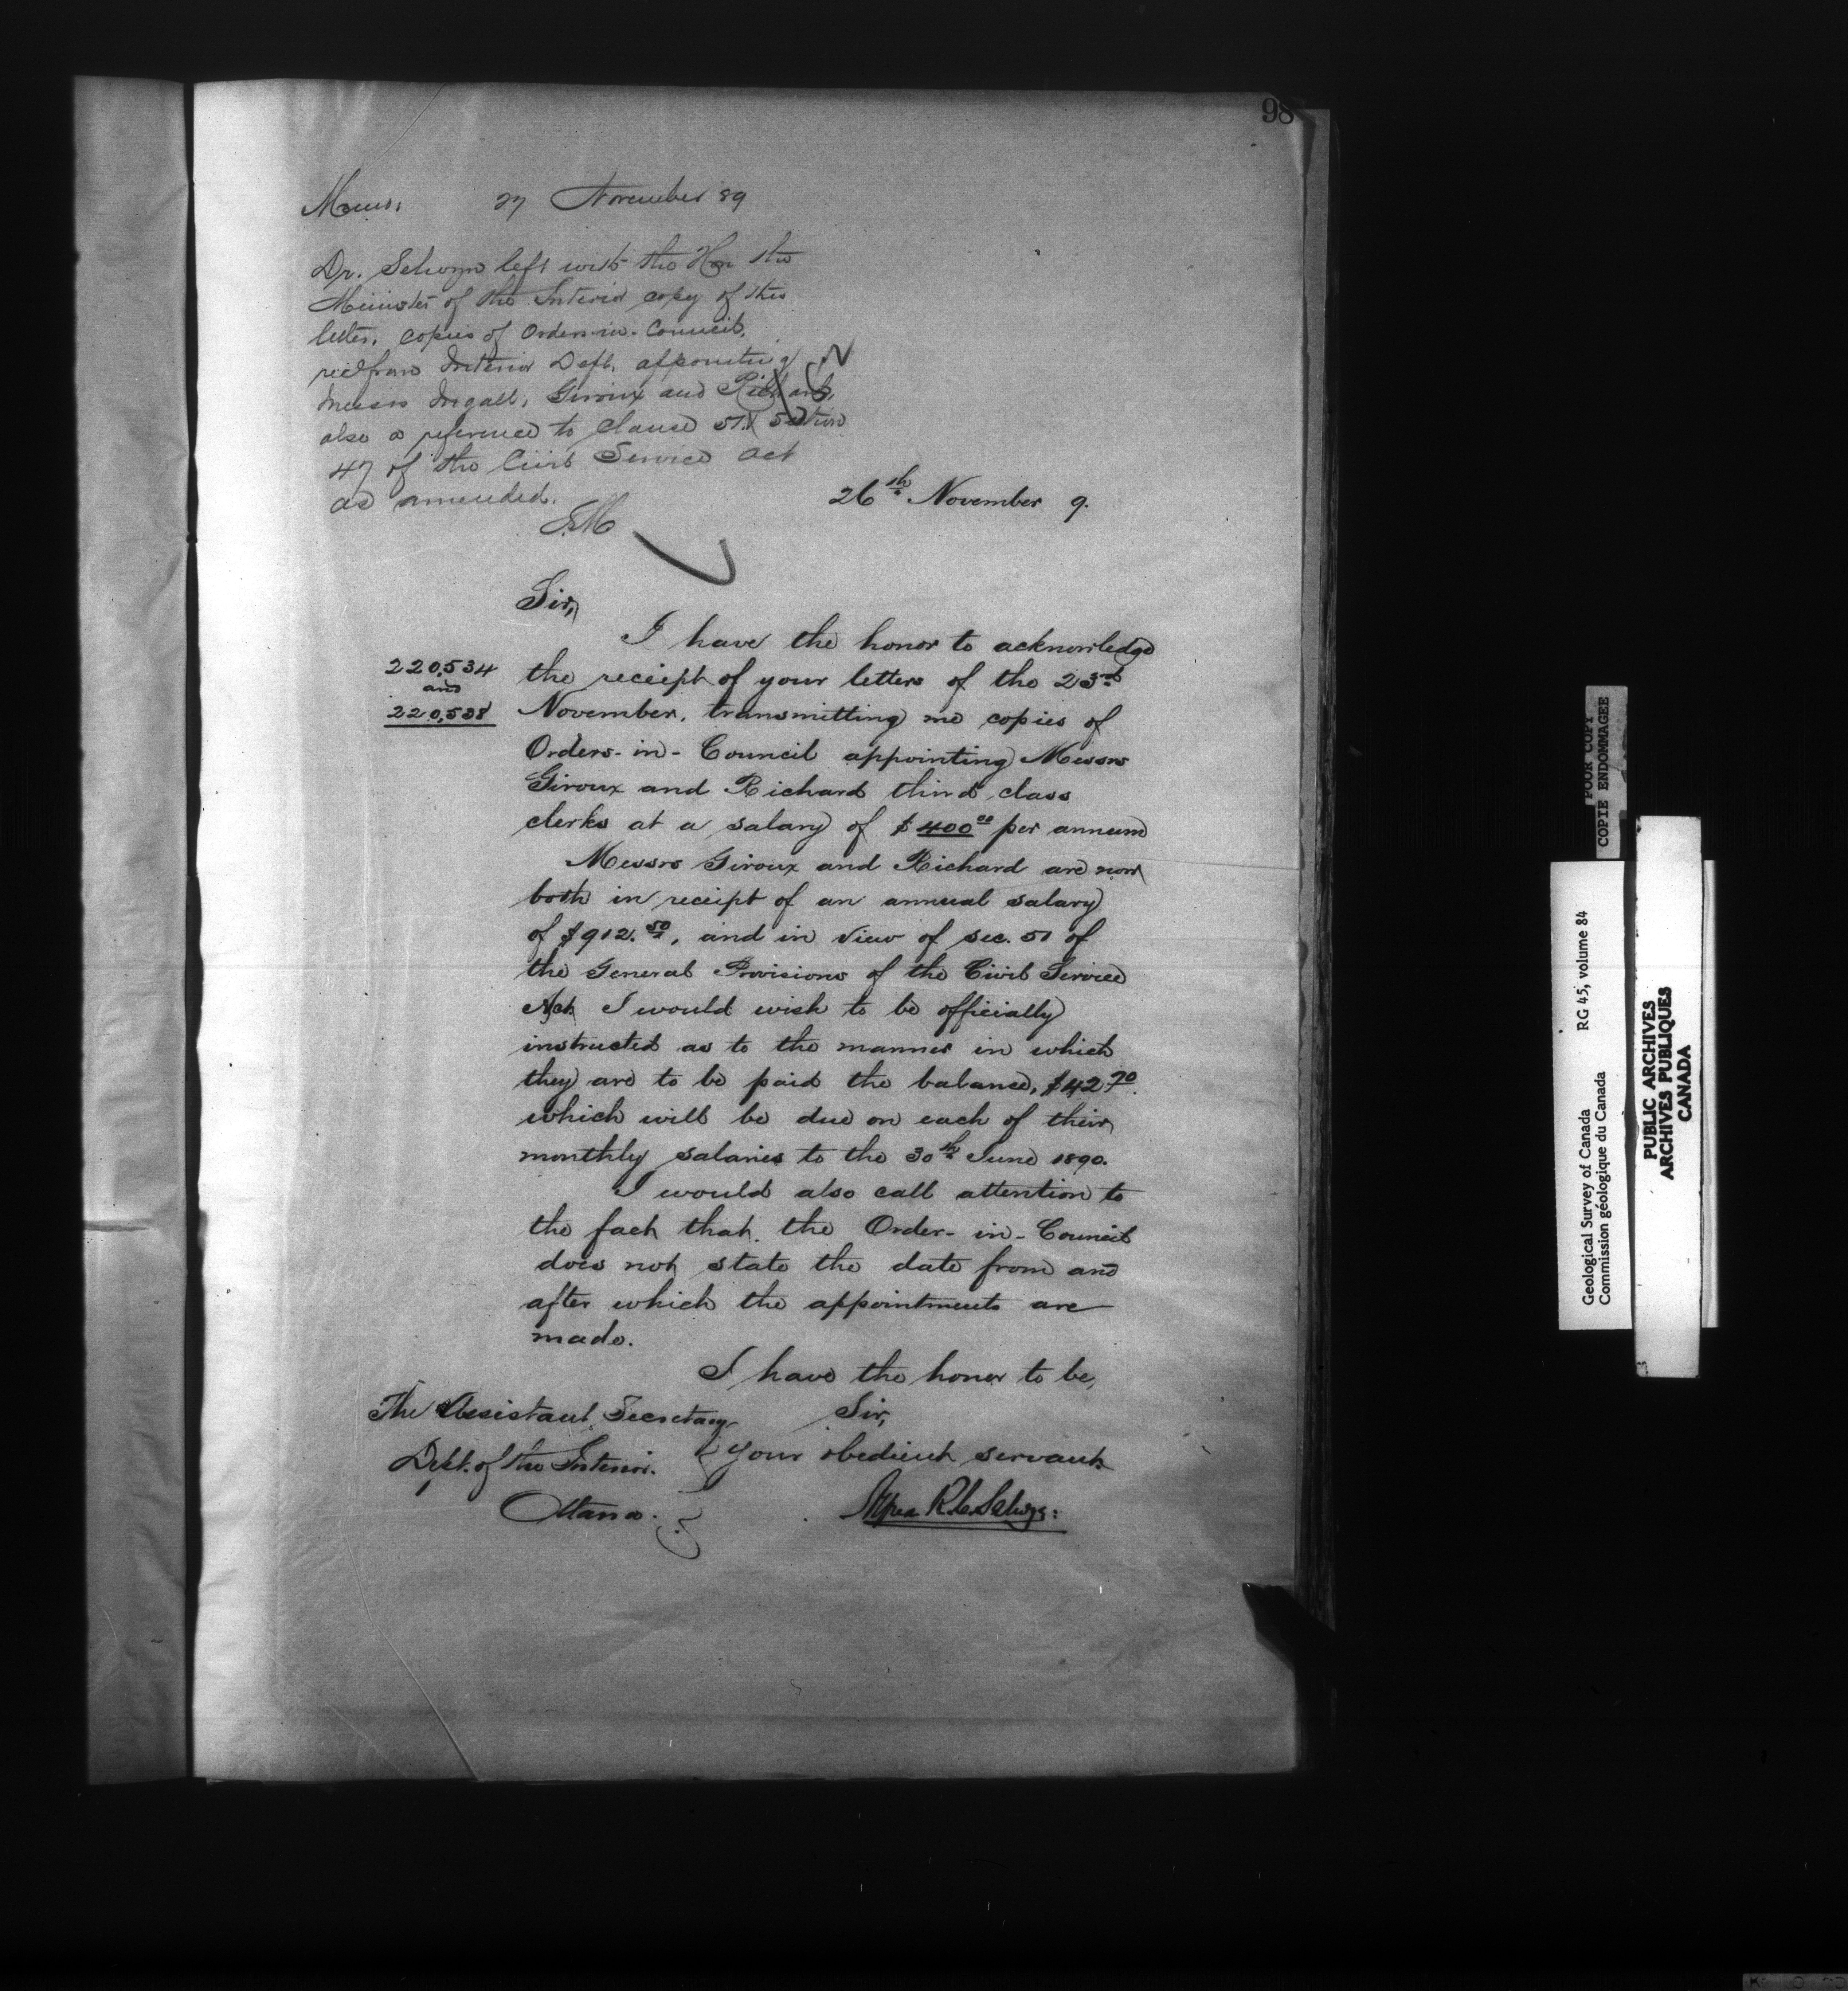 98
Memo: 27 November '89
Dr. Selwyn left with the Hon the
Minister of the Interior copy of this
letter, copies of Orders-in-Council,
rec'd from Interior Dept. appointing
Messrs Ingall, Giroux and Richard,
also a reference to Clause 51. Section
47 of the Civil Service Act
as amended.
26th November 9.
Sir,
I have the honor to acknowledge
220,534
and
220,538
the receipt of your letters of the 23rd
November, transmitting me copies of
Orders-in-Council appointing Messrs
Giroux and Richard third class
clerks at a salary of $400.00 per annum
Messrs Giroux and Richard are now
both in receipt of an annual salary
of $912.50, and in view of sec. 51 of
the General Provisions of the Civil Service
Act I would wish to be officially
instructed as to the manner in which
they are to be paid the balance, $42.70.
which will be due on each of their
monthly salaries to the 30th June 1890.
I would also call attention to
the fact that the Order-in-Council
does not state the date from and
after which the appointments are
made.
I have the honor to be,
Sir,
Your obedient servant
Alfred R. C. Selwyn:
The Assistant Secretary
Dept. of the Interior.
Ottawa.
POOR COPY
COPIE ENDOMMAGEE
Geological Survey of Canada RG 45, volume 84
Commission géologique du Canada
PUBLIC ARCHIVES
ARCHIVES PUBLIQUES
CANADA